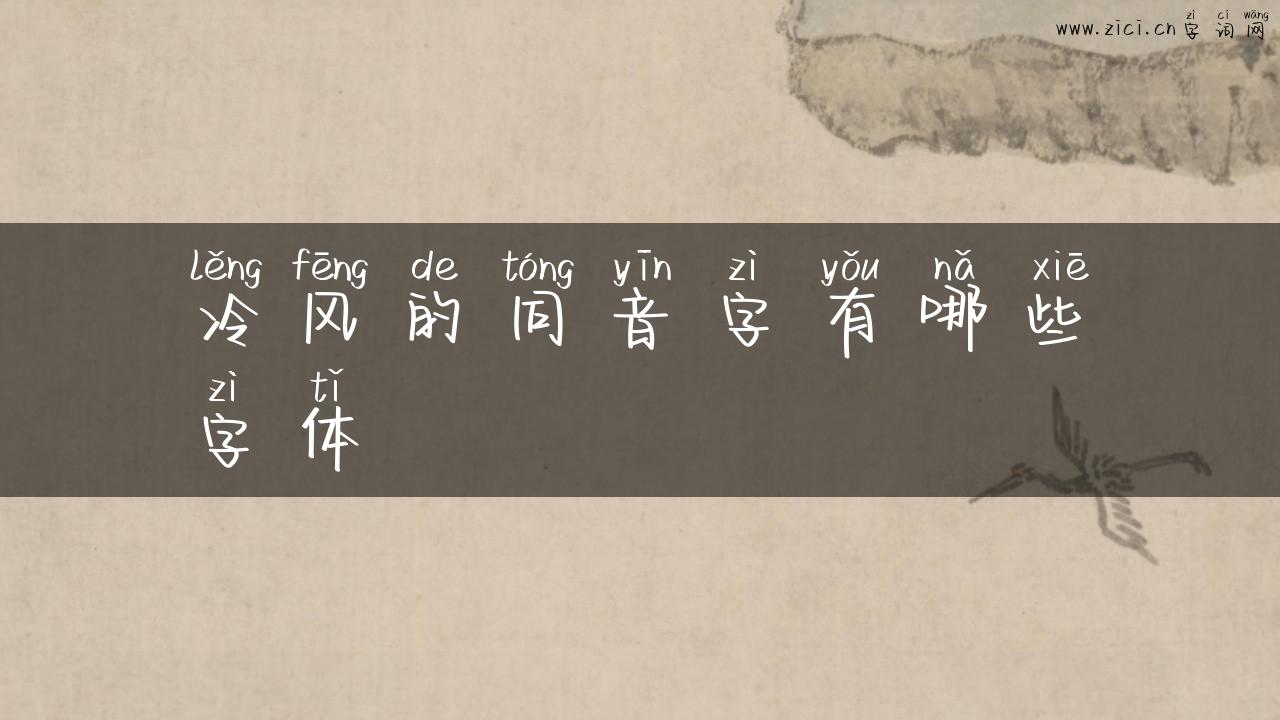 zì cí wǎng
www.zici.cn 字词网
lěng fēng de tóng yīn zì yǒu nǎ xiē
冷风的同音字有哪些
zì tǐ
字体